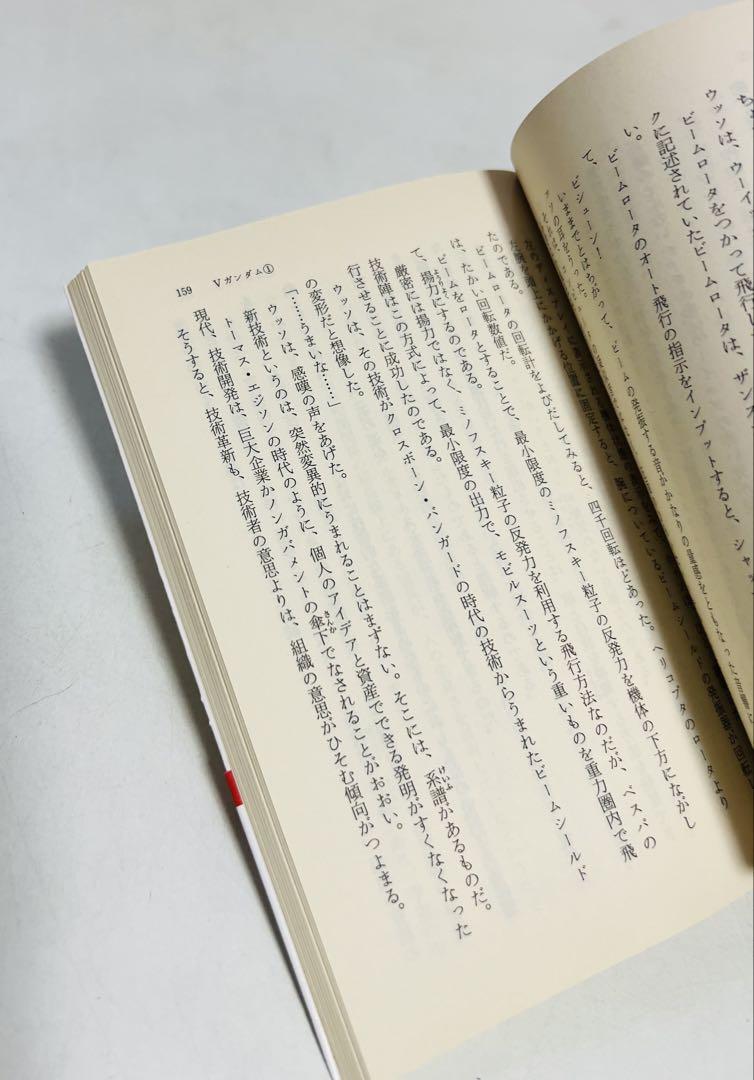 ち
ウッソは、ウーイ
ビームロータをつかって飛行し
クに記述されていたビームロータは、ザン
ビームロータのオート飛行の指示をインプットすると、シャ
い。
て、
ビシューン!
いままでとはちがって、ビームの発振する音がかなりの
159
Vガンダム①
左のディスプレイに表示され
左腕を頭上にかかげる位置に固定すると、腕についているビームシールドの発振器が回転
たのである。
ビームロータの回転計をよびだしてみると、四千回転ほどあった。ヘリコプタのロータより
は、たかい回転数値だ。
ビームをロータとすることで、最小限度のミノフスキー粒子の反発力を機体の下方にながし
て、揚力にするのである。
ようりょく
厳密には揚力ではなく、ミノフスキー粒子の反発力を利用する飛行方法なのだが、ベスパの
技術陣はこの方式によって、最小限度の出力で、モビルスーツという重いものを重力圏内で飛
行させることに成功したのである。
ウッソは、その技術がクロスボーン・バンガードの時代の技術からうまれたビームシールド
の変形だと想像した。
「……うまいな……」
ウッソは、感嘆の声をあげた。
新技術というのは、突然変異的にうまれることはまずない。そこには、系譜があるものだ。
けいふ
トーマス・エジソンの時代のように、個人のアイデアと資産でできる発明がすくなくなった
現代、技術開発は、巨大企業かノンガバメントの傘下でなされることがおおい。
さんか
そうすると、技術革新も、技術者の意思よりは、組織の意思がひそむ傾向がつよまる。